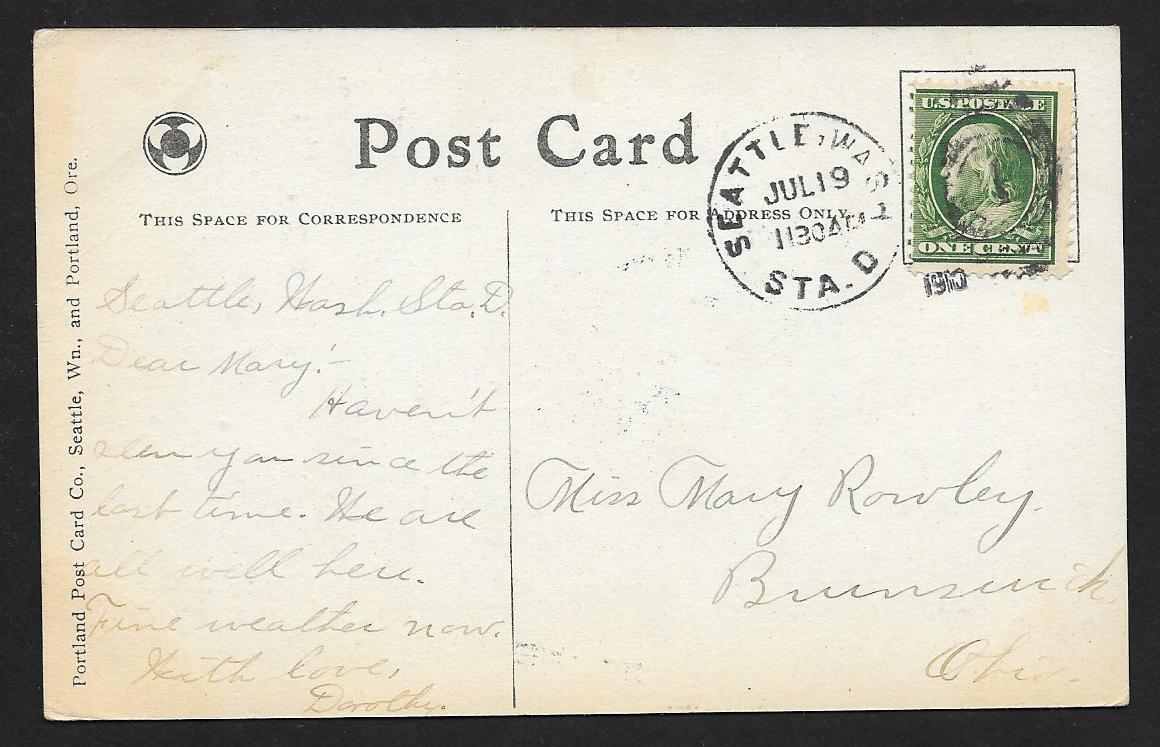 Post Card
THIS SPACE FOR CORRESPONDENCE
THIS SPACE FOR ADDRESS ONLY
Portland Post Card Co., Seattle, Wn., and Portland, Ore.
SEATTLE, WASH
JUL 19
1130 AM
STA. D
1910
U.S. POSTAGE
ONE CENT
Seattle, Wash. Sta. D.
Dear Mary:-
Haven't
seen you since the
last time. We are
all well here.
Fine weather now.
With love,
Dorothy.
Miss Mary Rowley.
Brunswick.
Ohio.